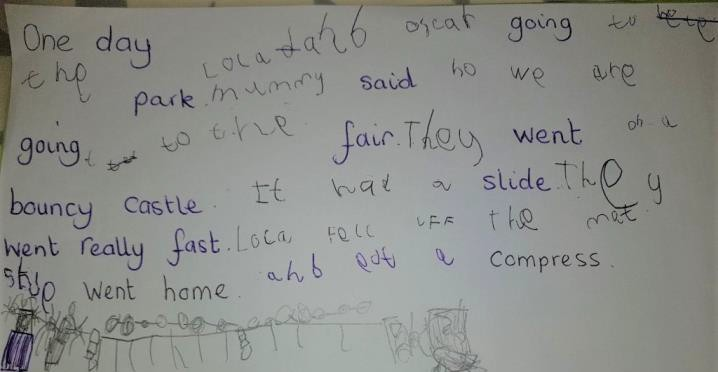 One day Loca ahb oscar going to
the park. Mummy said no we are
going to the fair. They went on a
bouncy castle. It had a slide. They
went really fast. Loca fell uff the mat.
She went home. ahb got a compress.